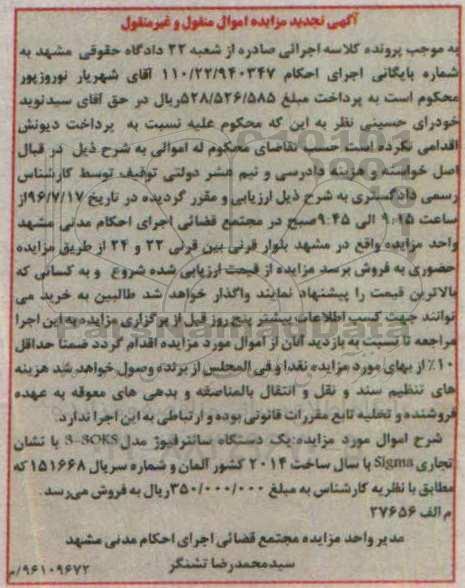 آگهی تجدید مزایده اموال منقول و غیرمنقول
به موجب پرونده کلاسه اجرائی صادره از شعبه ۲۲ دادگاه حقوقی مشهد به
شماره بایگانی اجرای احکام ۱۱۰/۲۲/۹۴۰۳۴۷ آقای شهریار نوروزپور
محکوم است به پرداخت مبلغ ۵۲۸/۵۲۶/۵۸۵ریال در حق آقای سیدنوید
خودرای حسینی نظر به این که محکوم علیه نسبت به پرداخت دیونش
اقدامی نکرده است حسب تقاضای محکوم له اموالی به شرح ذیل در قبال
اصل خواسته و هزینه دادرسی و نیم عشر دولتی توقیف توسط کارشناس
رسمی دادگستری به شرح ذیل ارزیابی و مقرر گردیده در تاریخ ۹۶/۷/۱۷از
ساعت ۹:۱۵ الی ۹:۴۵صبح در مجتمع قضائی اجرای احکام مدنی مشهد
واحد مزایده واقع در مشهد بلوار قرنی بین قرنی ۲۲ و ۲۴ از طریق مزایده
حضوری به فروش برسد مزایده از قیمت ارزیابی شده شروع و به کسانی که
بالاترین قیمت را پیشنهاد نمایند واگذار خواهد شد طالبین به خرید می
توانند جهت کسب اطلاعات بیشتر پنج روز قبل از برگزاری مزایده به این اجرا
مراجعه تا نسبت به بازدید آنان از اموال مورد مزایده اقدام گردد ضمنا حداقل
۱۰٪ از بهای مورد مزایده نقدا و فی المجلس از برنده وصول خواهد شد هزینه
های تنظیم سند و نقل و انتقال بالمناصفه و بدهی های معوقه به عهده
فروشنده و تخلیه تابع مقررات قانونی بوده و ارتباطی به این اجرا ندارد.
شرح اموال مورد مزایده:یک دستگاه سانتریفیوژ مدل 3-30KS با نشان
تجاری Sigma با سال ساخت ۲۰۱۴ کشور آلمان و شماره سریال ۱۵۱۶۶۸ که
مطابق با نظریه کارشناس به مبلغ ۳۵۰/۰۰۰/۰۰۰ریال به فروش می‌رسد.
م الف ۲۷۶۵۶
مدیر واحد مزایده مجتمع قضائی اجرای احکام مدنی مشهد
سیدمحمدرضا تشنگر
۹۶۱۰۹۶۷۲/م